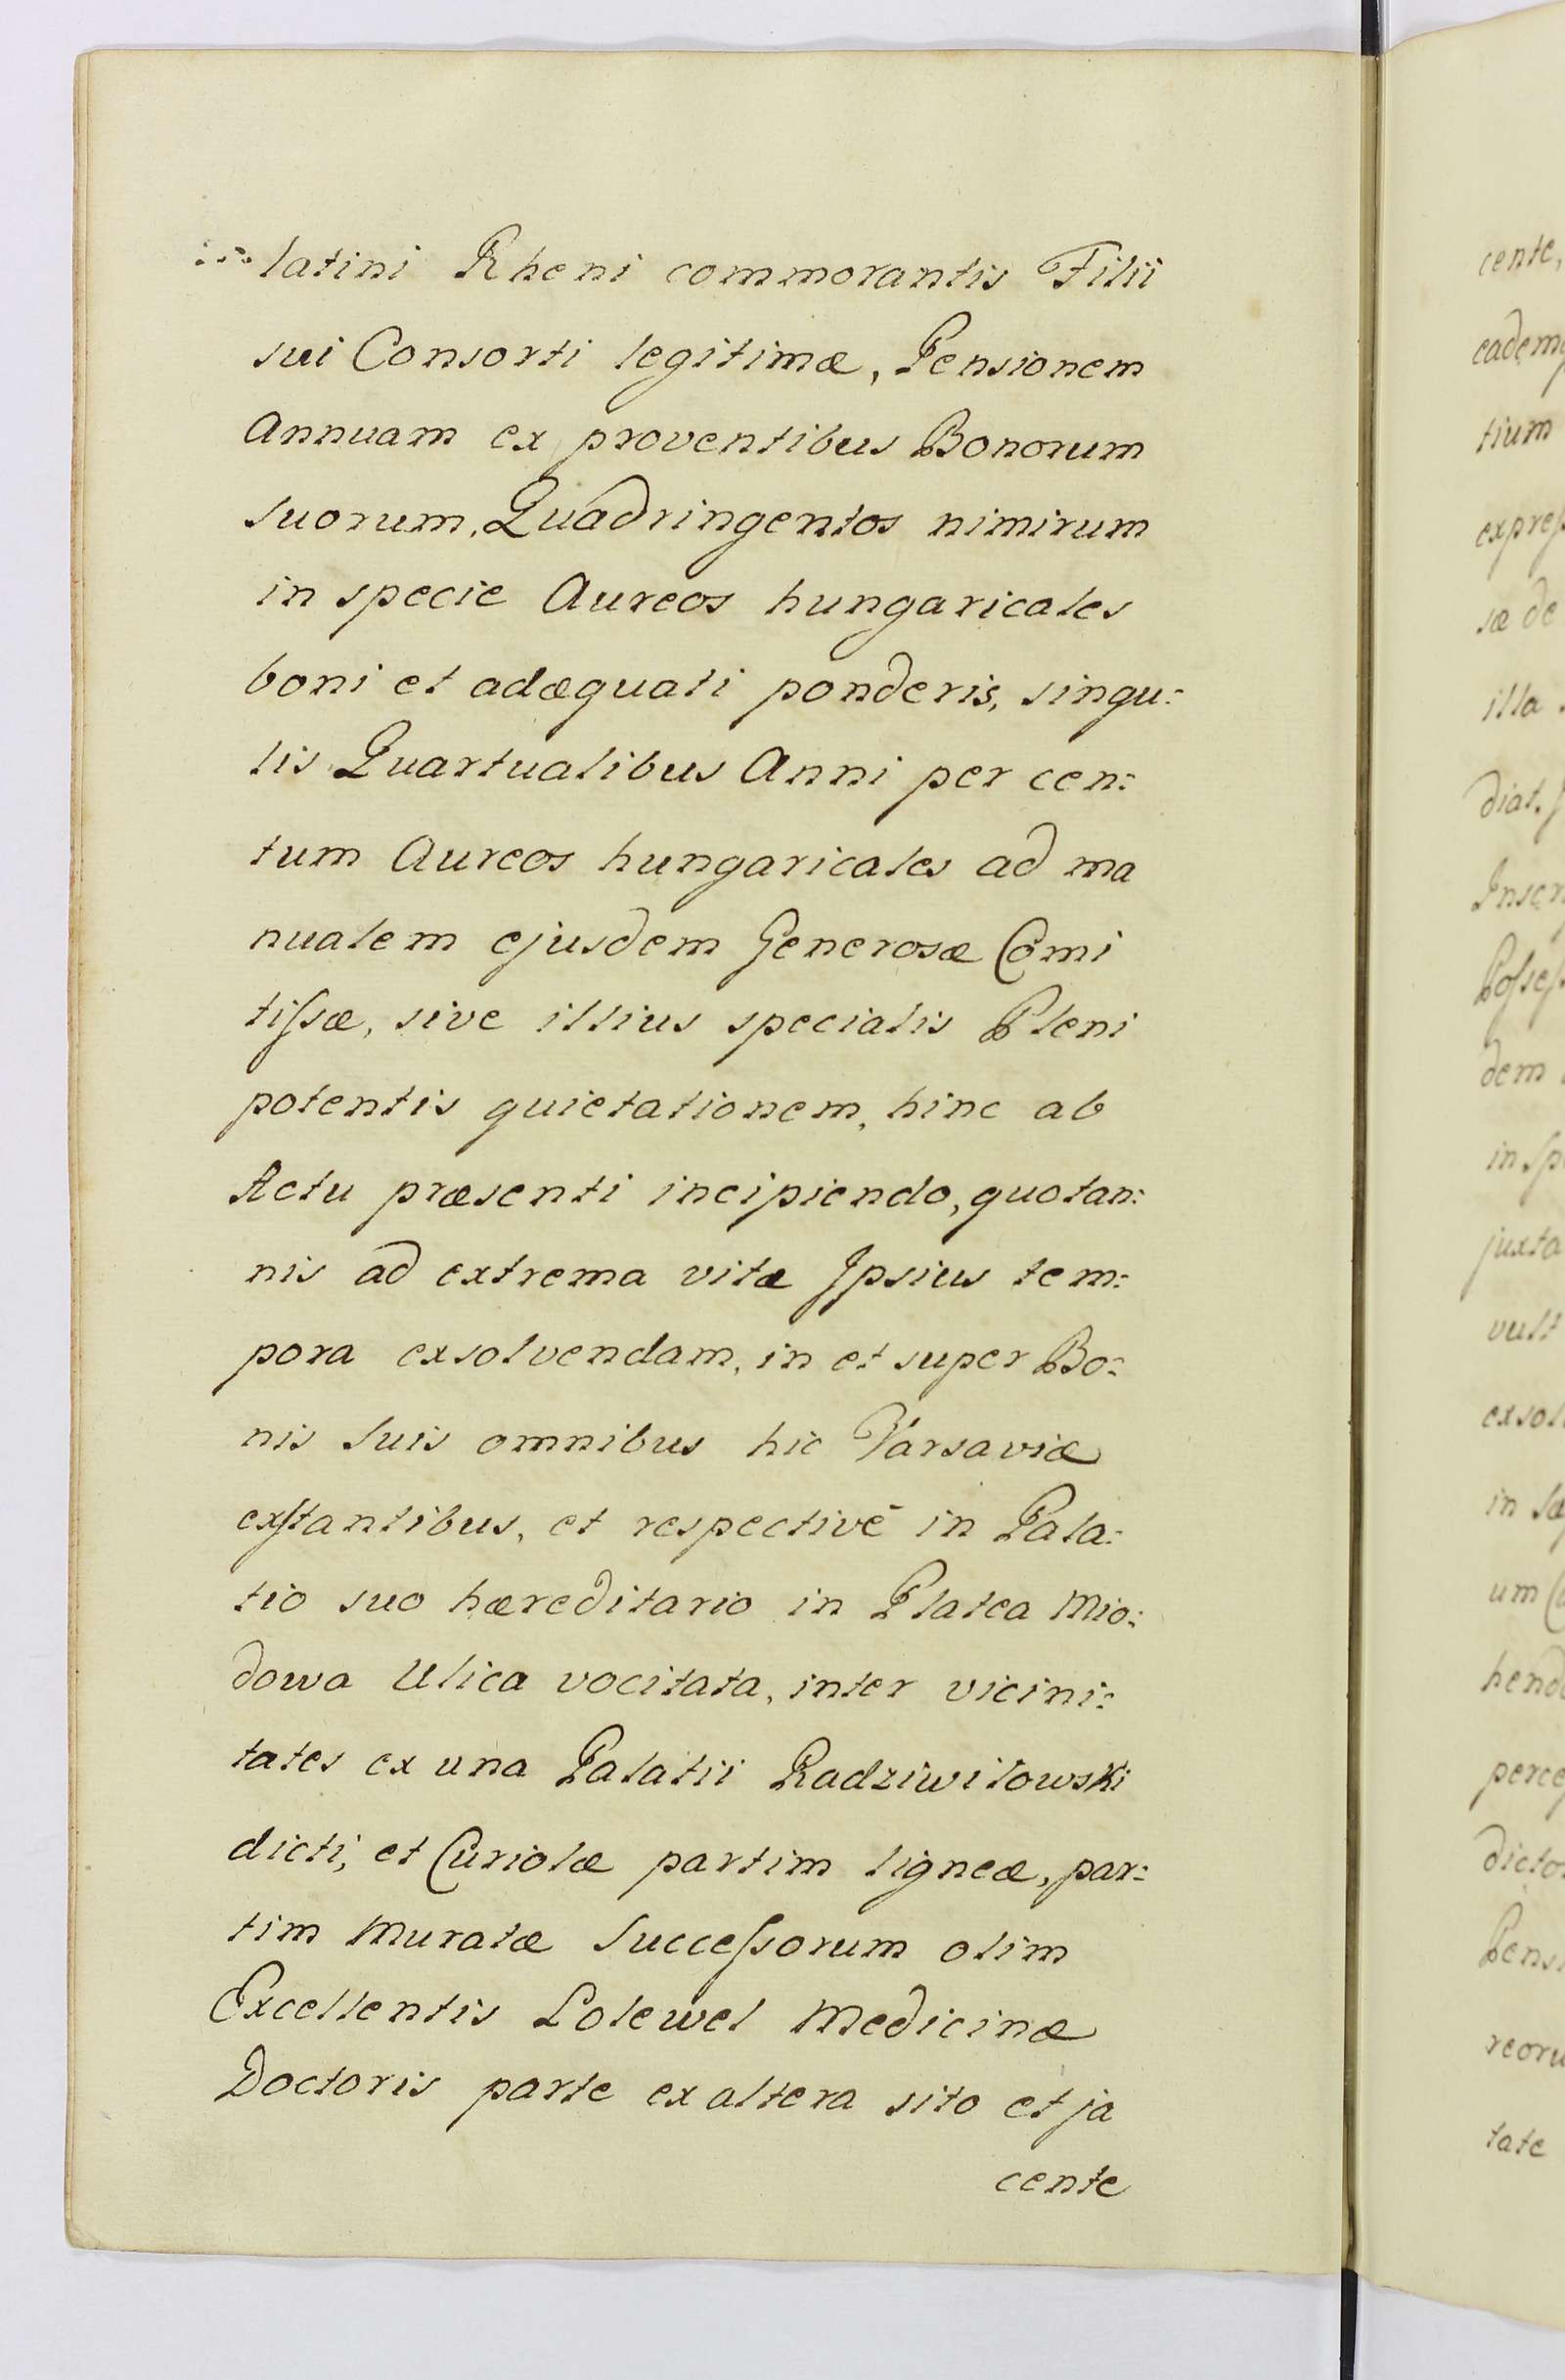 latini Rheni commorantis Filii
sui Consorti legitimæ, Pensionem
Annuam ex proventibus Bonorum
suorum, Quadringentos nimirum
in specie Aureos hungaricales
boni et adæquati ponderis, singu:
lis Quartualibus Anni per cen:
tum Aureos hungaricales ad ma
nualem ejusdem Generosæ Comi
tiſsæ, sive illius specialis Pleni
potentis quietationem, hinc ab
Actu præsenti incipiendo, quotan:
nis ad extrema vitæ Ipsius tem:
pora exsolvendam, in et super Bo:
nis suis omnibus hic Varsaviæ
exſtantibus, et respectivē in Pala:
tio suo hæreditario in Platea Mio:
dowa Ulica vocitata, inter vicini:
tates ex una Palatii Radziwiłowski
dicti, et Curiolæ partim ligneæ, par:
tim Muratæ Succeſsorum olim
Excellentis Lolewel Medicinæ
Doctoris parte ex altera sito et ja
cente
cente,
tium
sæ de
illa
dem
juxta
vult
tate